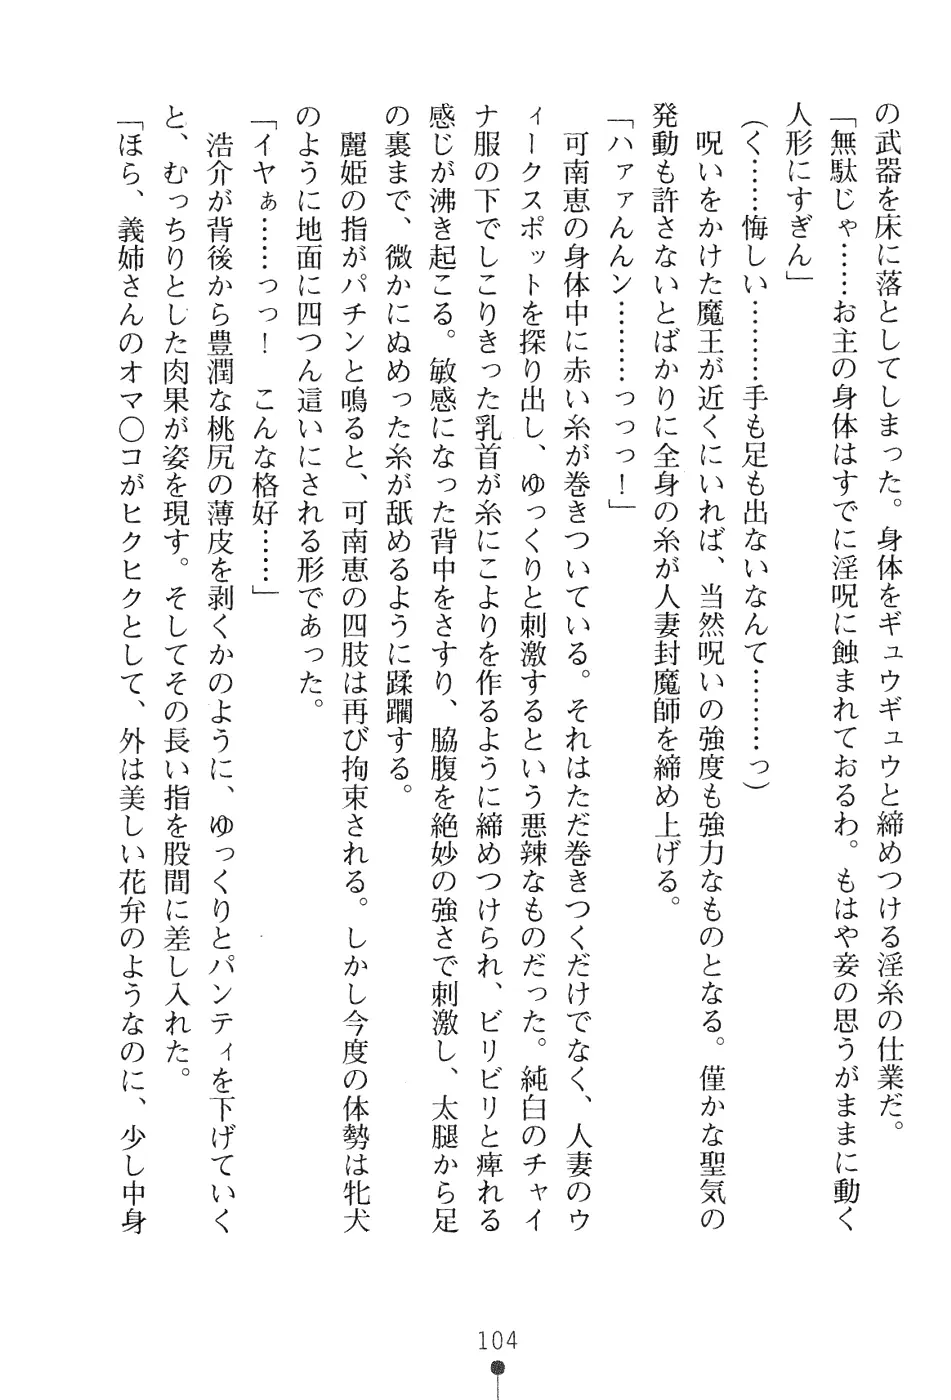 の武器を床に落としてしまった。身体をギュウギュウと締めつける淫糸の仕業だ。
「無駄じゃ……お主の身体はすでに淫呪に蝕まれておるわ。もはや妾の思うがままに動く
人形にすぎん」
（く……悔しい………手も足も出ないなんて………っ）
　呪いをかけた魔王が近くにいれば、当然呪いの強度も強力なものとなる。僅かな聖気の
発動も許さないとばかりに全身の糸が人妻封魔師を締め上げる。
「ハァァんんン………っっっ！」
　可南恵の身体中に赤い糸が巻きついている。それはただ巻きつくだけでなく、人妻のウ
ィークスポットを探り出し、ゆっくりと刺激するという悪辣なものだった。純白のチャイ
ナ服の下でしこりきった乳首が糸にこよりを作るように締めつけられ、ビリビリと痺れる
感じが沸き起こる。敏感になった背中をさすり、脇腹を絶妙の強さで刺激し、太腿から足
の裏まで、微かにぬめった糸が舐めるように蹂躙する。
　麗姫の指がパチンと鳴ると、可南恵の四肢は再び拘束される。しかし今度の体勢は牝犬
のように地面に四つん這いにされる形であった。
「イヤぁ……っっ！　こんな格好……」
　浩介が背後から豊潤な桃尻の薄皮を剥くかのように、ゆっくりとパンティを下げていく
と、むっちりとした肉果が姿を現す。そしてその長い指を股間に差し入れた。
「ほら、義姉さんのオマ〇コがヒクヒクとして、外は美しい花弁のようなのに、少し中身
104